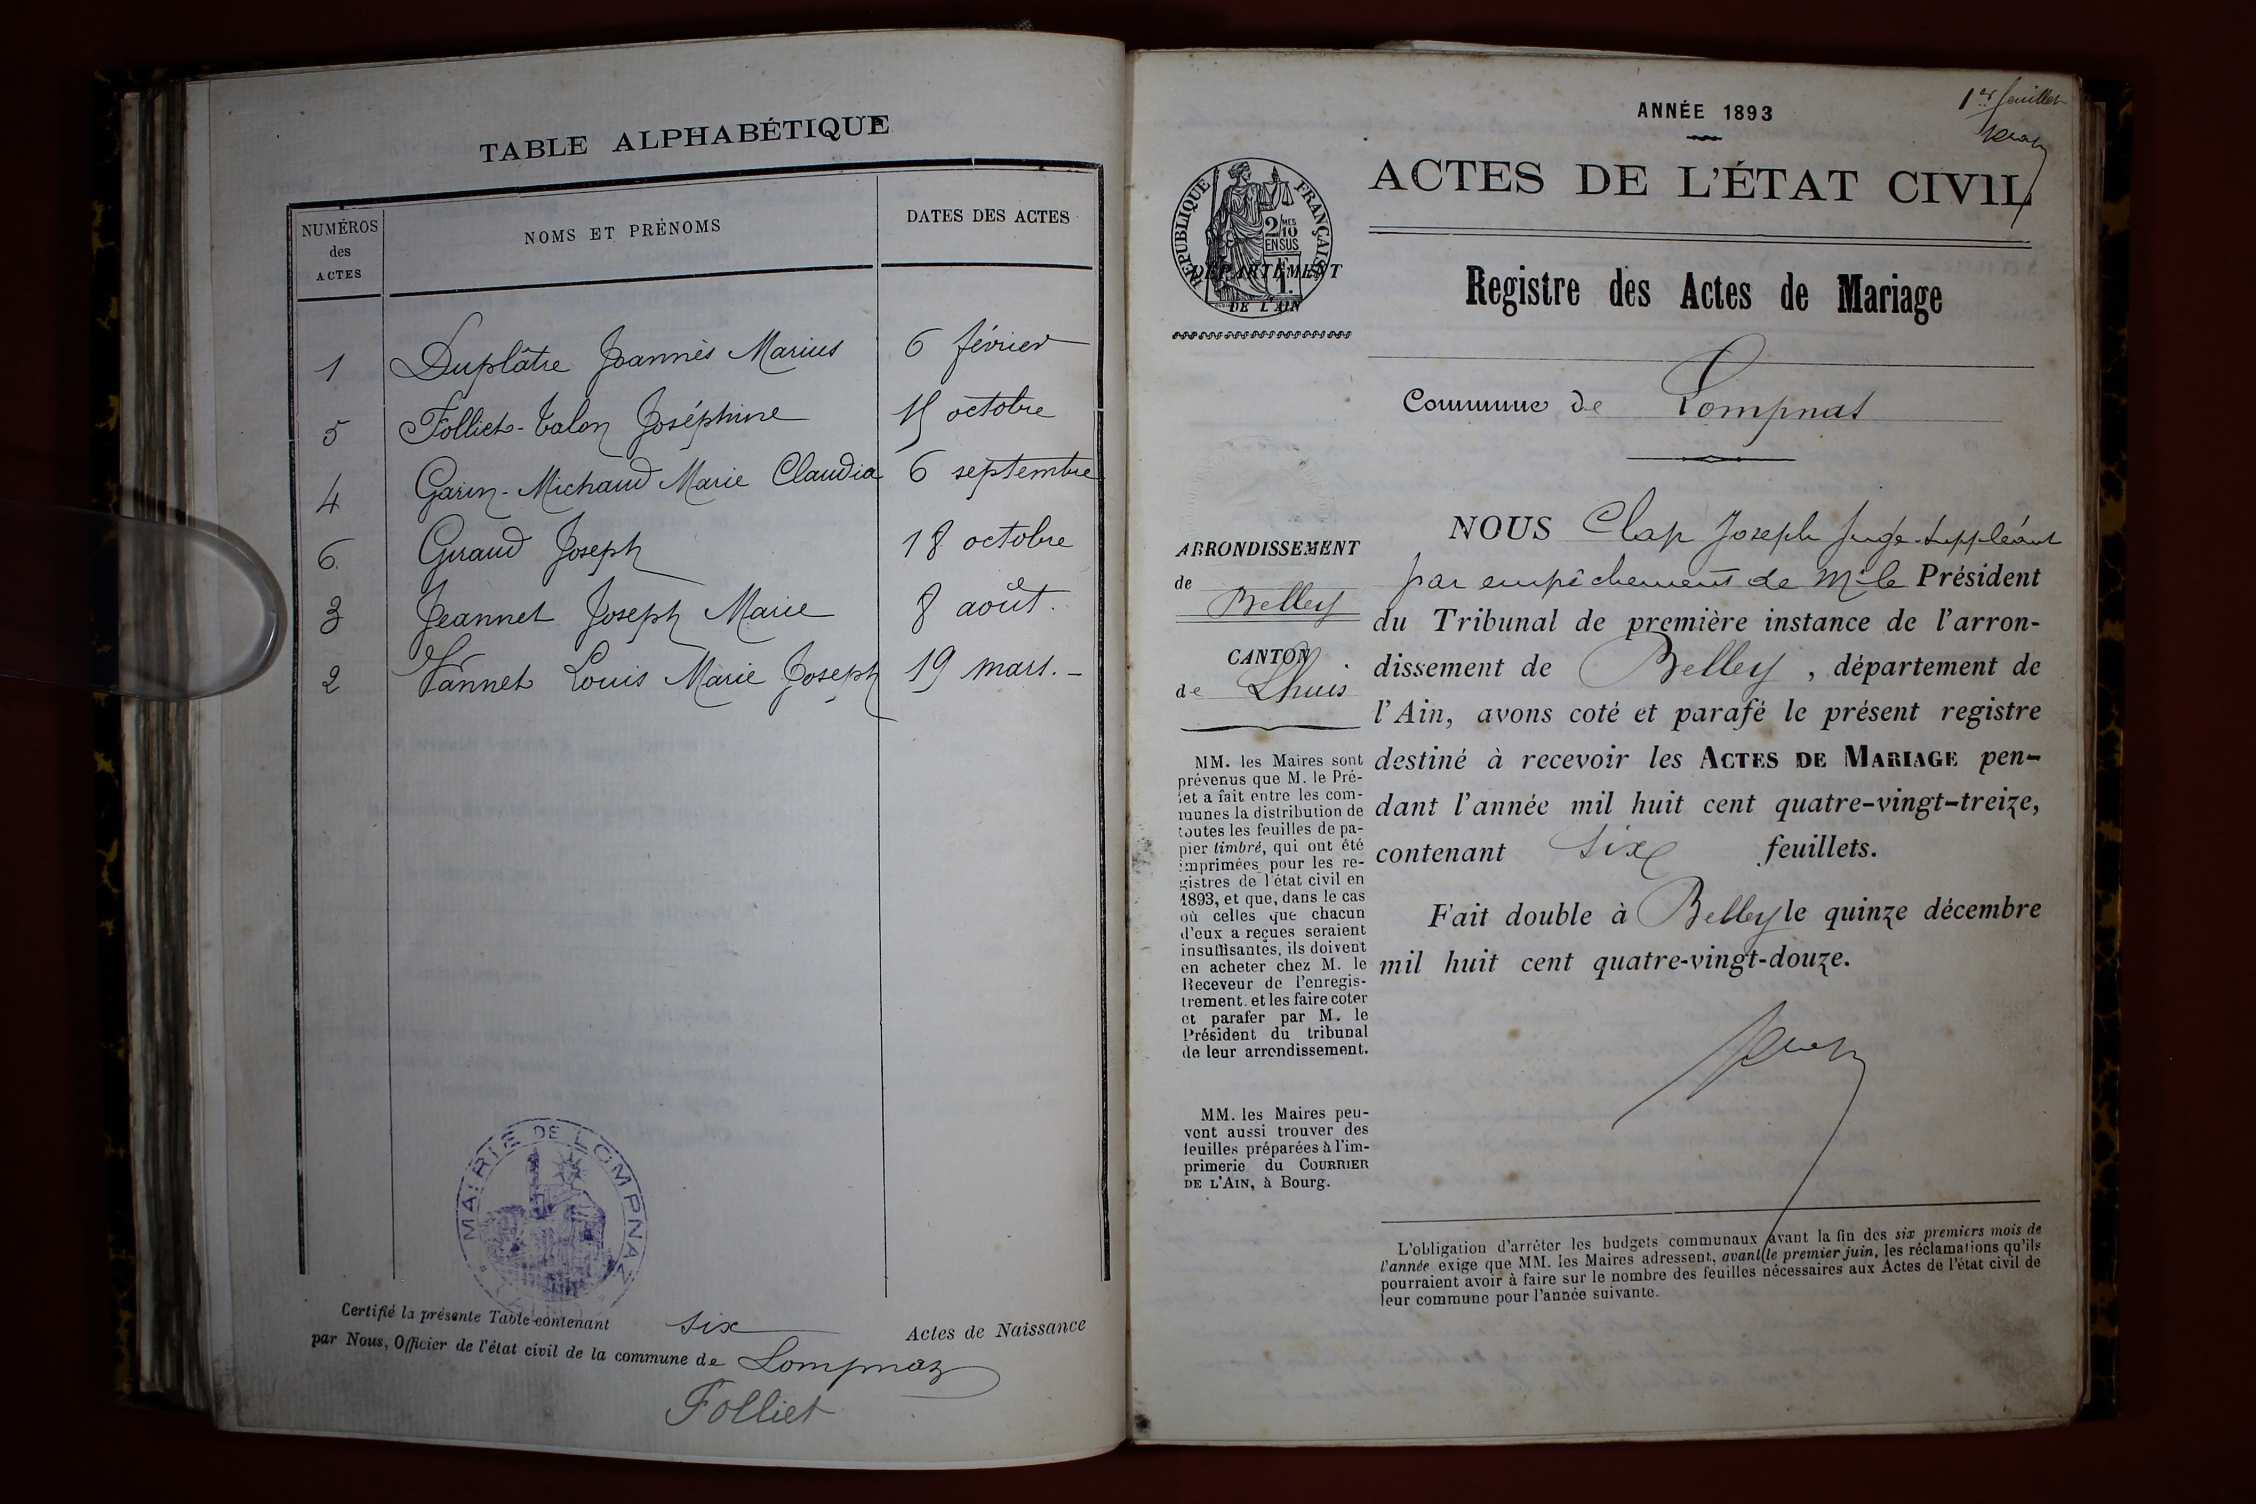 TABLE ALPHABÉTIQUE
NUMÉROS des ACTES NOMS ET PRÉNOMS DATES DES ACTES
1 Duplâtre Joannès Marius 6 février
5 Folliet-Talon Joséphine 15 octobre
4 Garin-Michaud Marie Claudia 6 septembre
6 Giraud Joseph 18 octobre
3 Jeannet Joseph Marie 8 août.
2 Vannet Louis Marie Joseph 19 mars.-
MAIRIE DE LOMPNAZ
Certifié la présente Table contenant six Actes de Naissance
par Nous, Officier de l'état civil de la commune de Lompnaz
Folliet
1er feuillet
ANNÉE 1893
ACTES DE L'ÉTAT CIVIL
RÉPUBLIQUE FRANÇAISE
2/10 MES
EN SUS
1 F.
DÉPARTEMENT
DE L'AIN
Registre des Actes de Mariage
Commune de Lompnas
ARRONDISSEMENT
de Belley
CANTON
de Lhuis
MM. les Maires sont
prévenus que M. le Pré-
fet a fait entre les com-
munes la distribution de
toutes les feuilles de pa-
pier timbré, qui ont été
imprimées pour les re-
gistres de l'état civil en
1893, et que, dans le cas
où celles que chacun
d'eux a reçues seraient
insuffisantes, ils doivent
en acheter chez M. le
Receveur de l'enregis-
trement. et les faire coter
et parafer par M. le
Président du tribunal
de leur arrondissement.
MM. les Maires peu-
vent aussi trouver des
feuilles préparées à l'im-
primerie du COURRIER
DE L'AIN, à Bourg.
NOUS Clap Joseph Juge-Suppléant
par empêchement de Mr le Président
du Tribunal de première instance de l'arron-
dissement de Belley, département de
l'Ain, avons coté et parafé le présent registre
destiné à recevoir les ACTES DE MARIAGE pen-
dant l'année mil huit cent quatre-vingt-treize,
contenant six feuillets.
Fait double à Belley le quinze décembre
mil huit cent quatre-vingt-douze.
L'obligation d'arrêter les budgets communaux avant la fin des six premiers mois de
l'année exige que MM. les Maires adressent, avant le premier juin, les réclamations qu'ils
pourraient avoir à faire sur le nombre des feuilles nécessaires aux Actes de l'état civil de
leur commune pour l'année suivante.